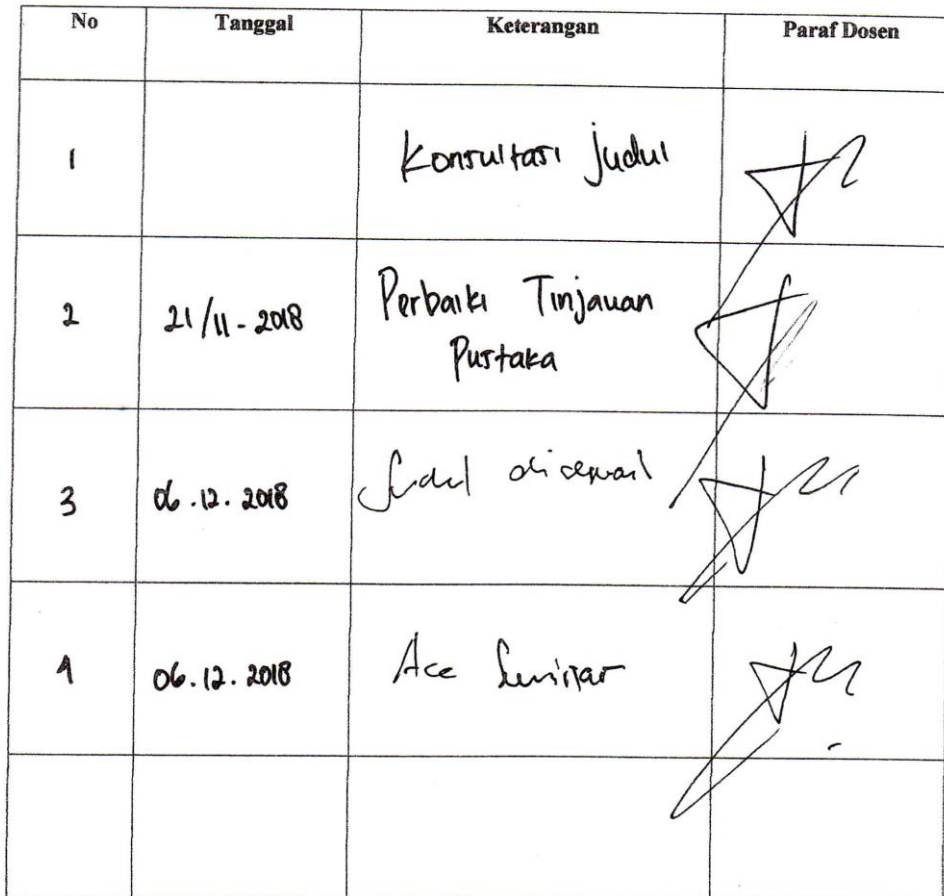 No Tanggal Keterangan Paraf Dosen
1 Konsultasi judul
2 21/11-2018 Perbaiki Tinjauan
Pustaka
3 06.12.2018 Judul
4 06.12.2018 Ace Seminar